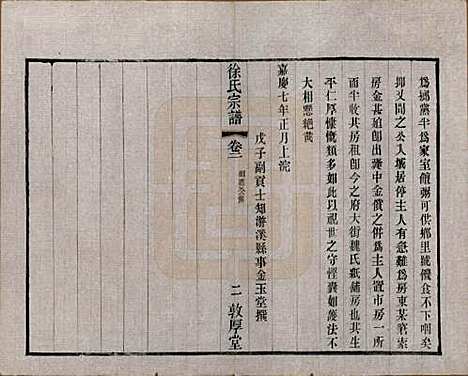 爲鄉黨半爲家室饘粥可供鄉里饑餽食不啣矣
抑又聞之公入城居停主人有急難爲房東某筆索
房金甚迫卽出橐中金償之併爲主人置市房一所
而半收其房租卽今之府大街魏氏紙舖房也其生
平仁厚慷慨類多如此以視世之守慳囊如護法不
大相懸絕哉
嘉慶七年正月上浣
戊子副貢士知漷溪縣事金玉堂撰
徐氏宗譜
卷二
二
敦厚堂